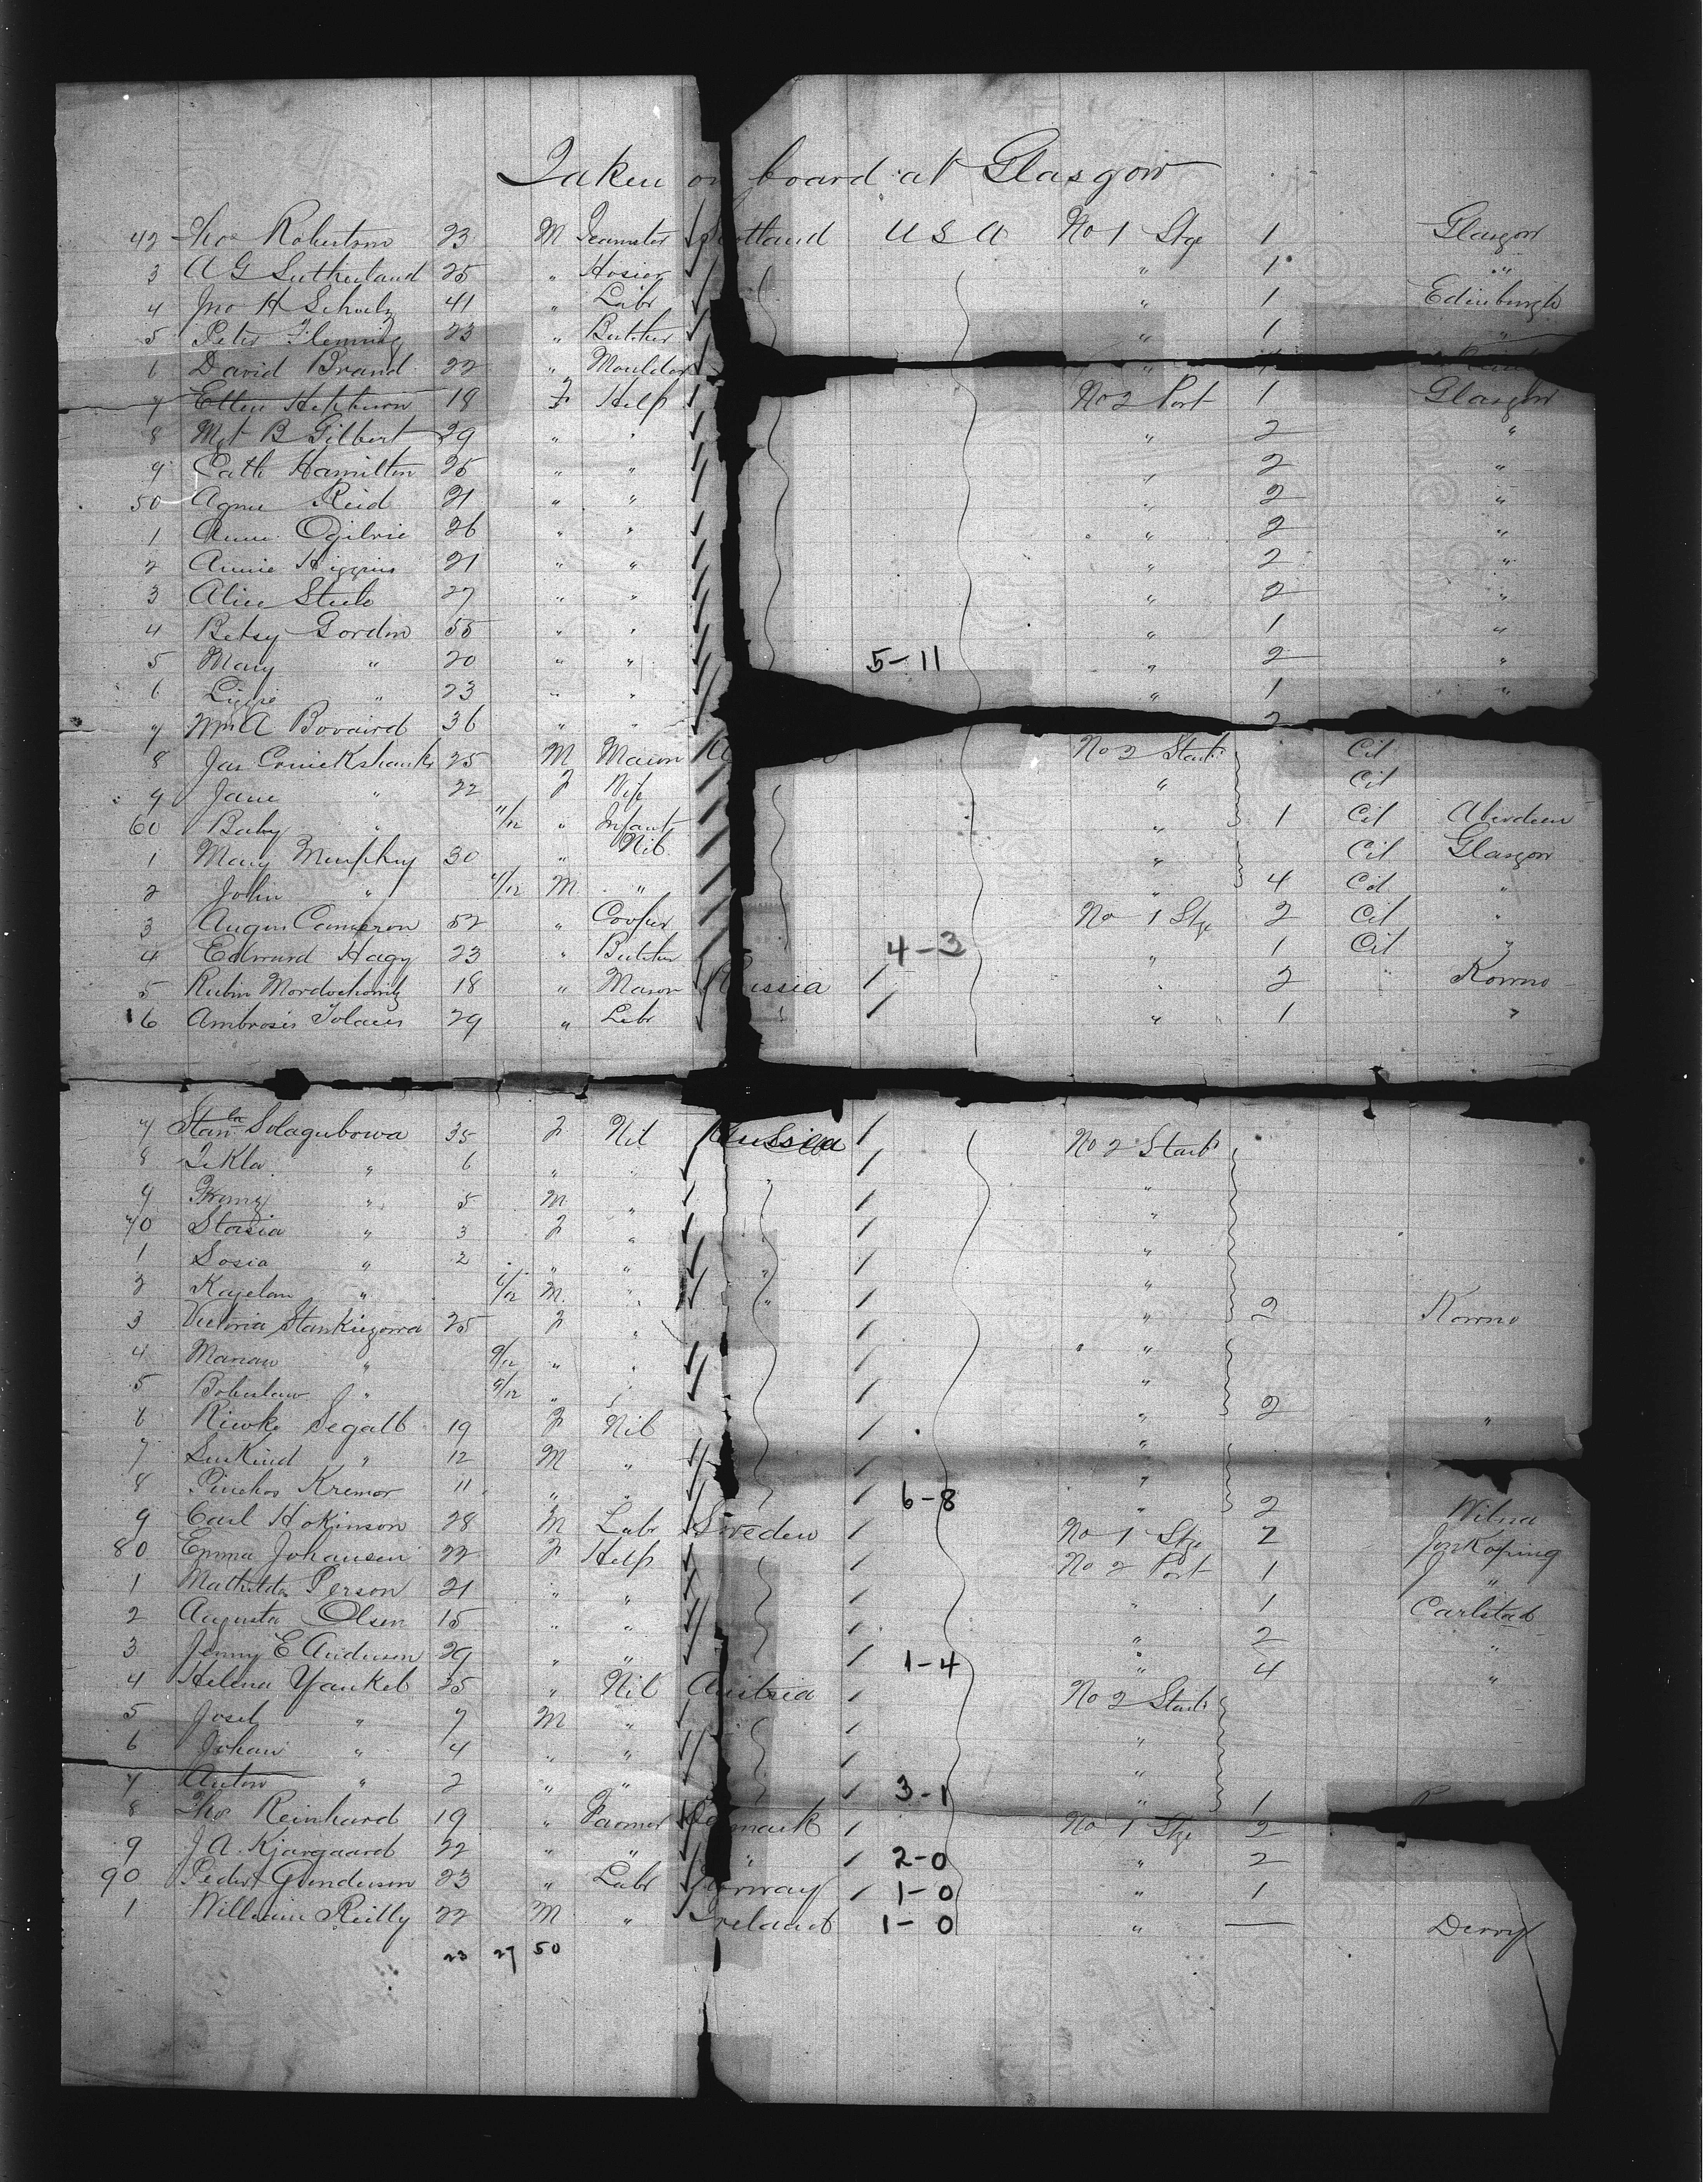 Taken on board at Glasgow
42 Thos Robertson 23 M Teamster Scotland U S A No 1 Stge 1 Glasgow
3 A G Sutherland 25 " Hosier " 1 "
4 Jno H Schultz 41 " Labr " 1 Edinburgh
5 Peter Fleming 23 " Butcher " 1 "
6 David Brand 22 " Moulder "
7 Ellen Hepburn 18 F Help No 2 Port 1 Glasgow
8 Mgt B Gilbert 29 " " " 2 "
9 Cath Hamilton 25 " " " 2 "
50 Agnes Reid 21 " " " 2 "
1 Annie Ogilvie 26 " " " 2 "
2 Annie Higgins 21 " " " 2 "
3 Alice Steele 27 " " " 2 "
4 Betsy Gordon 55 " " " 1 "
5 Mary " 20 " " 5-11 " 2 "
6 Lizzie " 23 " " " 1 "
7 Wm A Bovaird 36 " " 2
8 Jas Cruickshanks 25 M Mason No 2 Starb Cit
9 Jane " 22 F Wife " Cit
60 Baby " 11/12 " Infant " 1 Cit Aberdeen
1 Mary Murphy 30 " Nil " Cit Glasgow
2 John " 11/12 M " " 4 Cit "
3 Angus Cameron 52 " Cooper No 1 Stge 2 Cit "
4 Edward Hagy 23 " Butcher 4-3 " 1 Cit "
5 Rubin Mordochowitz 18 " Mason Russia / " 2 " Kowno
6 Ambrosis Tolacis 29 " Labr / " 1 "
7 Stanla Solagubowa 35 F Nil Russia / No 2 Starb
8 Tekla " 6 " " " / "
9 Franz " 5 M " / "
70 Stasia " 3 F " / "
1 Sosia " 2 " " " / "
2 Kajetan " 6/12 M " " / " 2 Kowno
3 Victoria Stankiezowa 25 F " / "
4 Marian " 9/12 " " / "
5 Boleslaw " 9/12 " " / " 2 "
6 Riwke Segall 19 F Nil / "
7 Suskind " 12 M " / "
8 Pinchos Kremor 11 " " / 6-8 " 2 Wilna
9 Carl Hokinson 28 M Labr Sweden / No 1 Stge 2 Jonkoping
80 Emma Johansen 22 F Help / No 2 Port 1 "
1 Mathilda Person 21 " " / " 1 Carlstad
2 Augusta Olsen 15 " " / " 2 "
3 Jenny E Andersen 29 " " / 1-4 " 4 "
4 Helena Yankel 35 " Nil Austria / No 2 Starb
5 Josel " 7 M " / "
6 Johan " 4 " " / "
7 Anton " 2 " " / 3-1 " 1
8 Thos Reinhard 19 " Farmer Denmark / No 1 Stge 2
9 J A Kjargaard 22 " " " / 2-0 " 2
90 Peder Gundersen 23 " Labr Norway / 1-0 " 1
1 William Reilly 22 M " Ireland 1-0 " — Derry
23 27 50